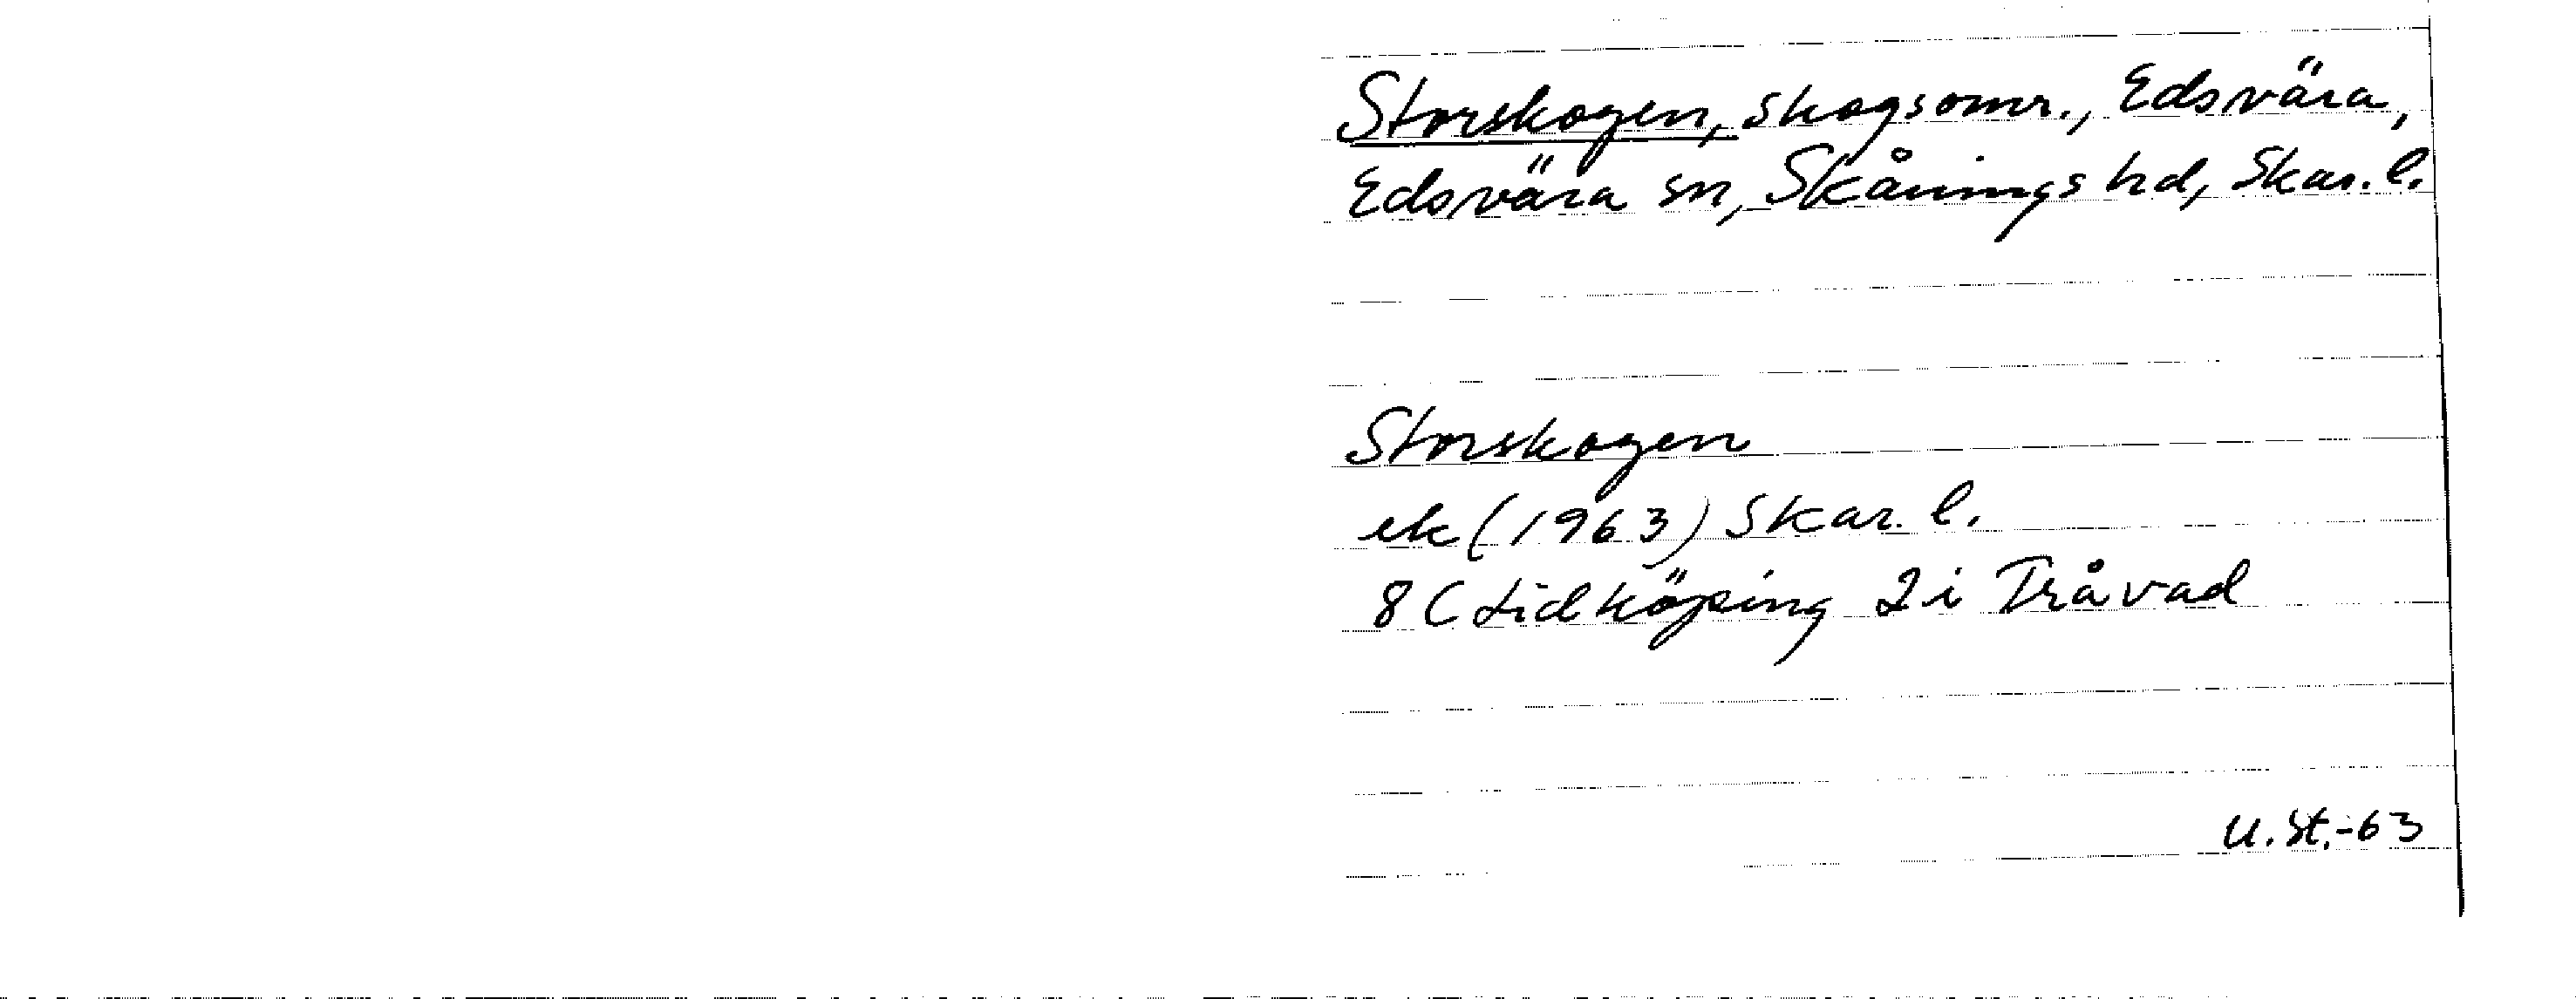 Storskogen, skogsomr., Edsvära,
Edsvära sn, Skånings hd, Skar. l.
Storskogen
ek (1963) Skar. l.
8 C Lidköping 2 i Tråvad
U. St. -63